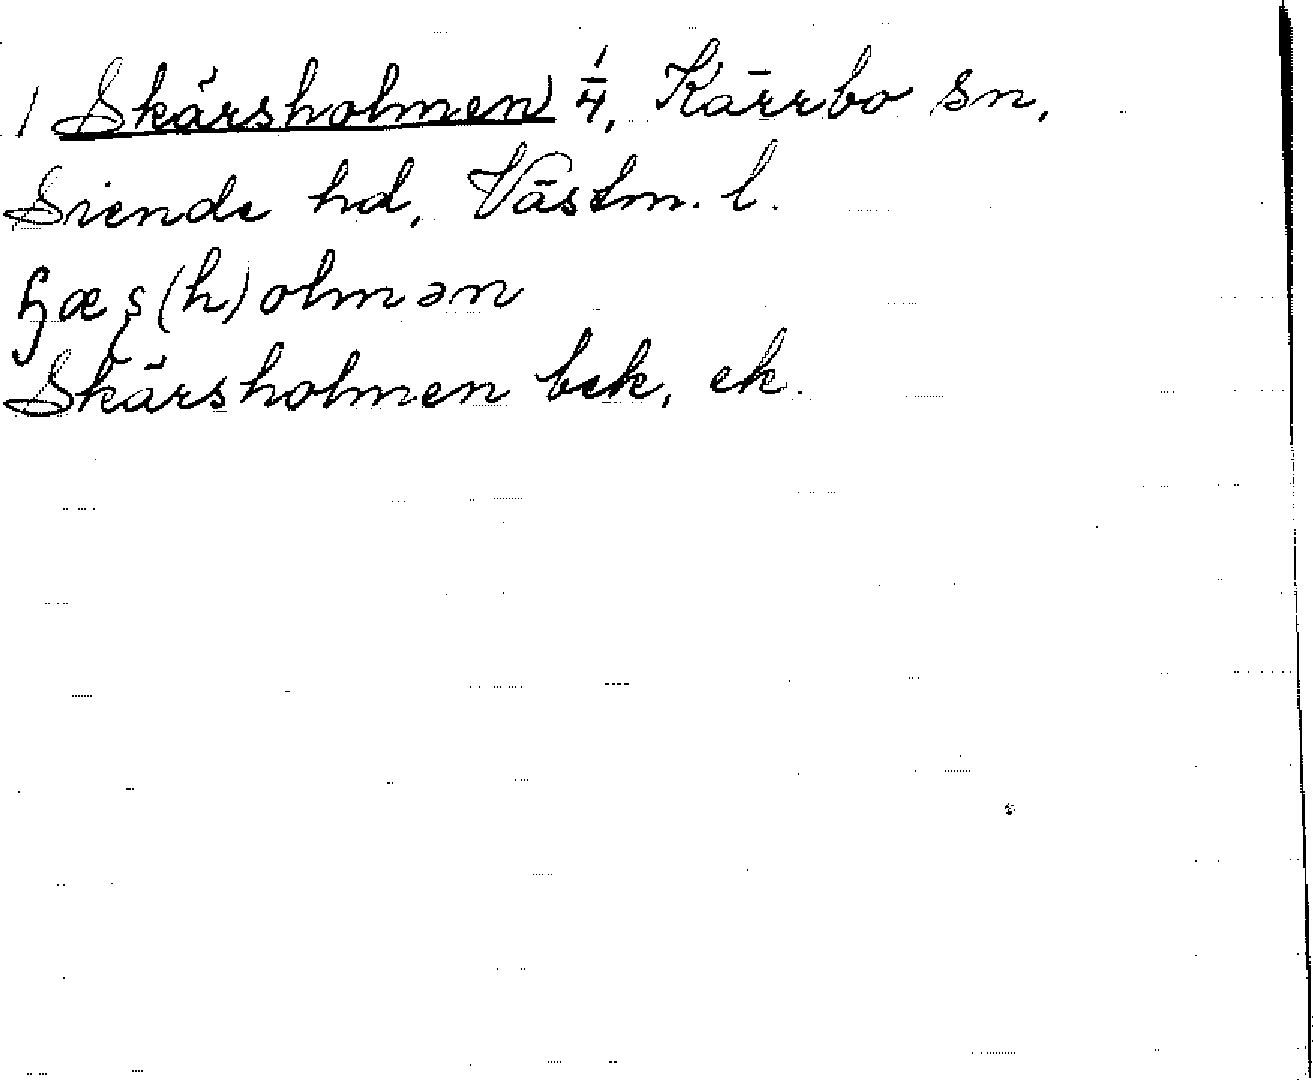 1 Skärsholmen 1/4, Kärrbo sn,
Siende hd, Västm. l.
ɧæʂ(h)olmən
Skärsholmen bek, ek.